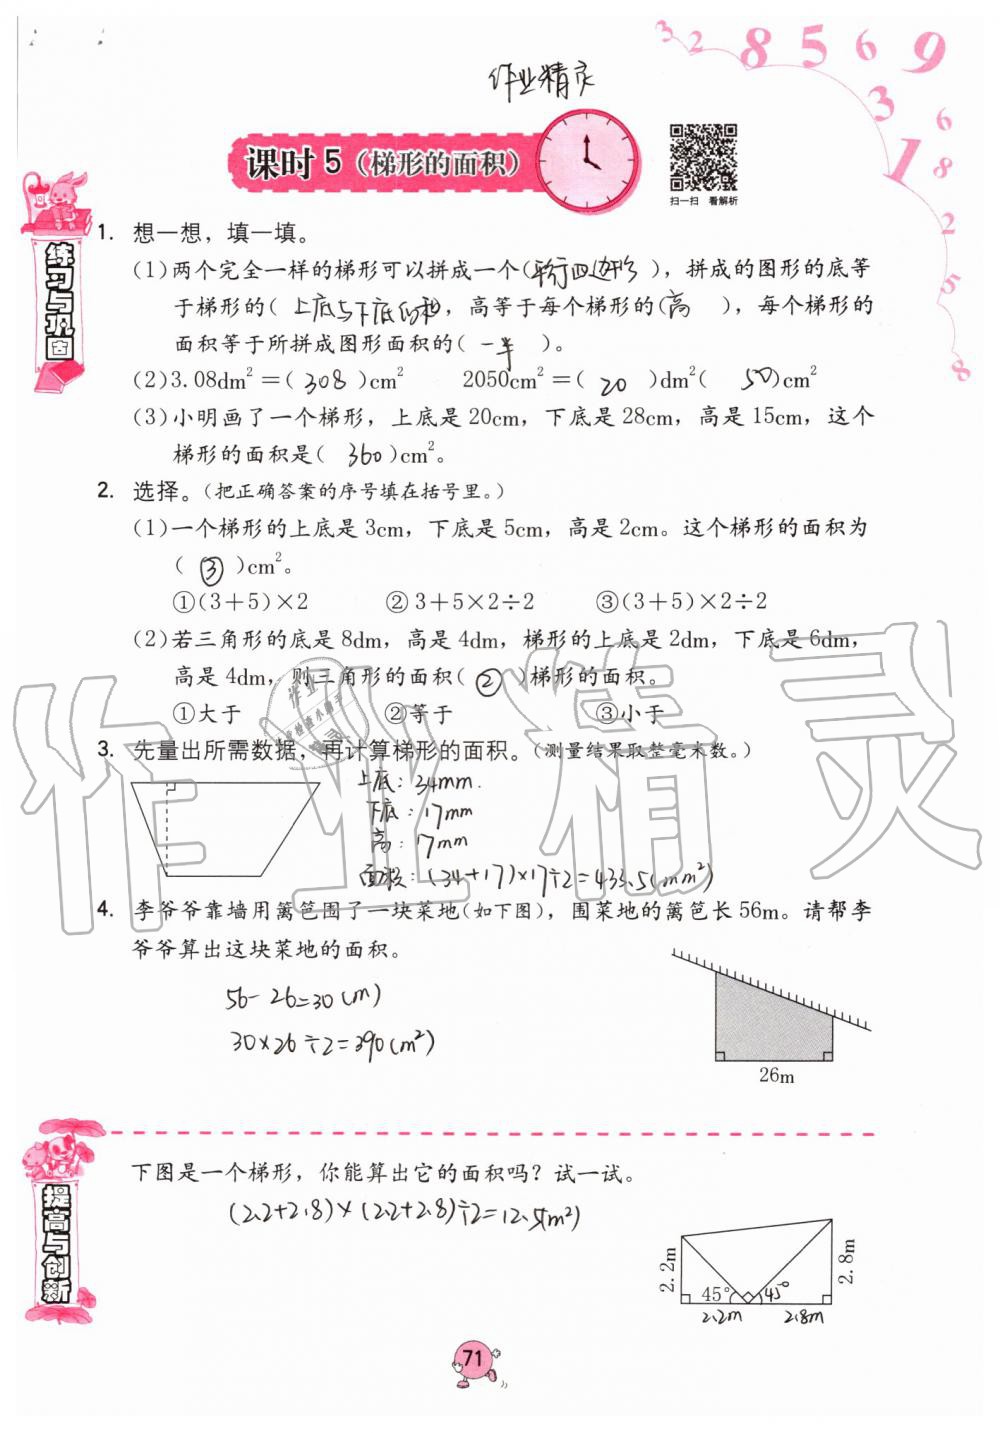 3 2 8 5 6 9
3
1
6
8
2
5
8
作业精灵
课时 5（梯形的面积）
扫一扫 看解析
练习与巩固
1. 想一想，填一填。
(1)两个完全一样的梯形可以拼成一个(平行四边形)，拼成的图形的底等
于梯形的( 上底与下底的和，高等于每个梯形的(高 )，每个梯形的
面积等于所拼成图形面积的( 一半 )。
(2)3.08dm²=( 308 )cm² 2050cm²=( 20 )dm²( 50)cm²
(3)小明画了一个梯形，上底是20cm，下底是28cm，高是15cm，这个
梯形的面积是( 360)cm²。
2. 选择。(把正确答案的序号填在括号里。)
(1)一个梯形的上底是3cm，下底是5cm，高是2cm。这个梯形的面积为
( ③ )cm²。
①(3+5)×2 ②3+5×2÷2 ③(3+5)×2÷2
(2)若三角形的底是8dm，高是4dm，梯形的上底是2dm，下底是6dm，
高是4dm，则三角形的面积( ② )梯形的面积。
①大于 ②等于 ③小于
3. 先量出所需数据，再计算梯形的面积。(测量结果取整毫米数。)
上底：34mm.
下底：17mm
高：17mm
面积：(34+17)×17÷2=433.5(mm²)
4. 李爷爷靠墙用篱笆围了一块菜地(如下图)，围菜地的篱笆长56m。请帮李
爷爷算出这块菜地的面积。
56-26=30(m)
30×26÷2=390(m²)
26m
提高与创新
下图是一个梯形，你能算出它的面积吗？试一试。
(2.2+2.8)×(2.2+2.8)÷2=12.5(m²)
2.2m
45°
45°
2.8m
2.2m 2.8m
71
作业精灵